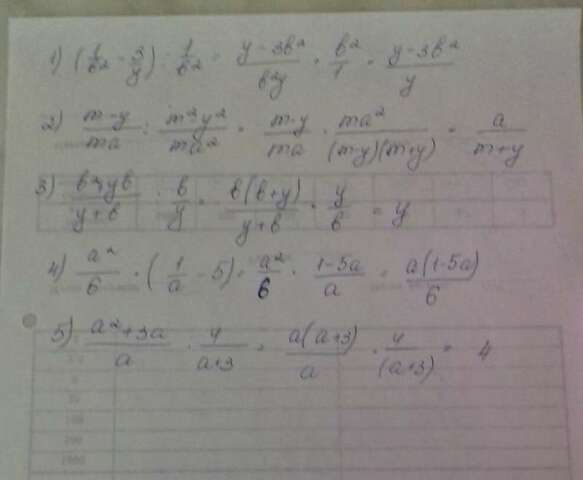 1) (1/b² - 3/y) : 1/b² = (y - 3b²)/(b²y) · b²/1 = (y - 3b²)/y
2) (m-y)/(ma) : (m²-y²)/(ma²) = (m-y)/(ma) · ma²/((m-y)(m+y)) = a/(m+y)
3) (b²+yb)/(y+b) : b/y = b(b+y)/(y+b) · y/b = y
4) a²/6 · (1/a - 5) = a²/6 · (1-5a)/a = a(1-5a)/6
5) (a²+3a)/a · 4/(a+3) = a(a+3)/a · 4/(a+3) = 4